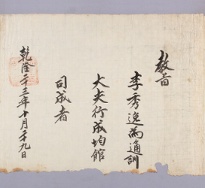 教旨
李秀逸為通訓
大夫行成均館
司成者
乾隆二十三年十月十九日